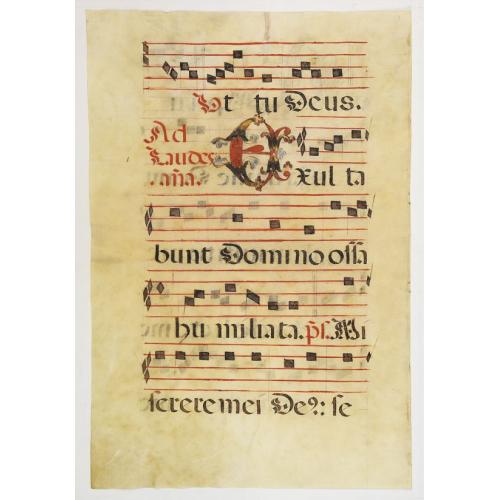 Et tu Deus.
Ad
Laudes
aña. Exulta
bunt Domino ossa
humiliata. ps. Mi
serere mei De9: se